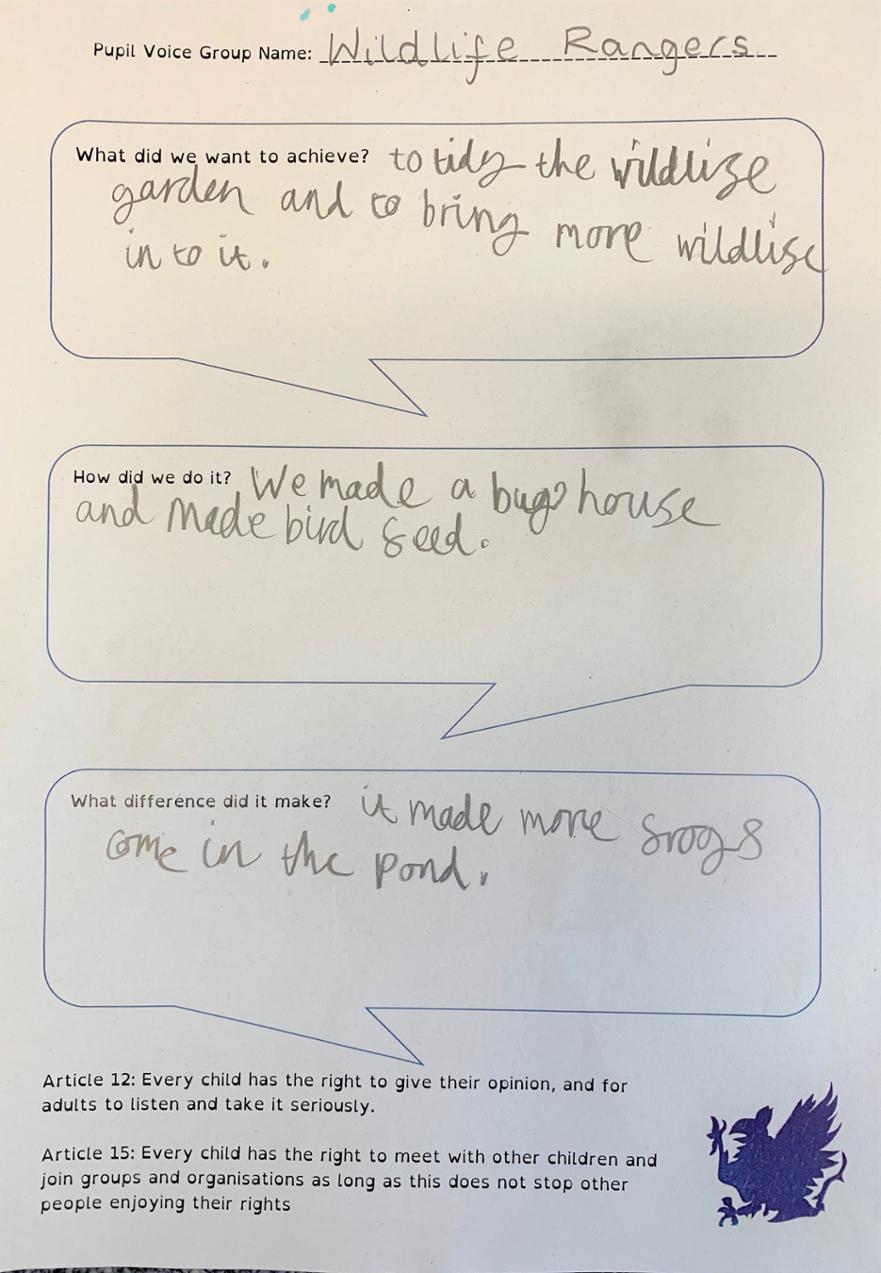 Pupil Voice Group Name: Wildlife Rangers
What did we want to achieve? to tidy the wildlife
garden and to bring more wildlife
in to it.
How did we do it? We made a bug house
and made bird seed.
What difference did it make? it made more frogs
come in the pond.
Article 12: Every child has the right to give their opinion, and for
adults to listen and take it seriously.
Article 15: Every child has the right to meet with other children and
join groups and organisations as long as this does not stop other
people enjoying their rights